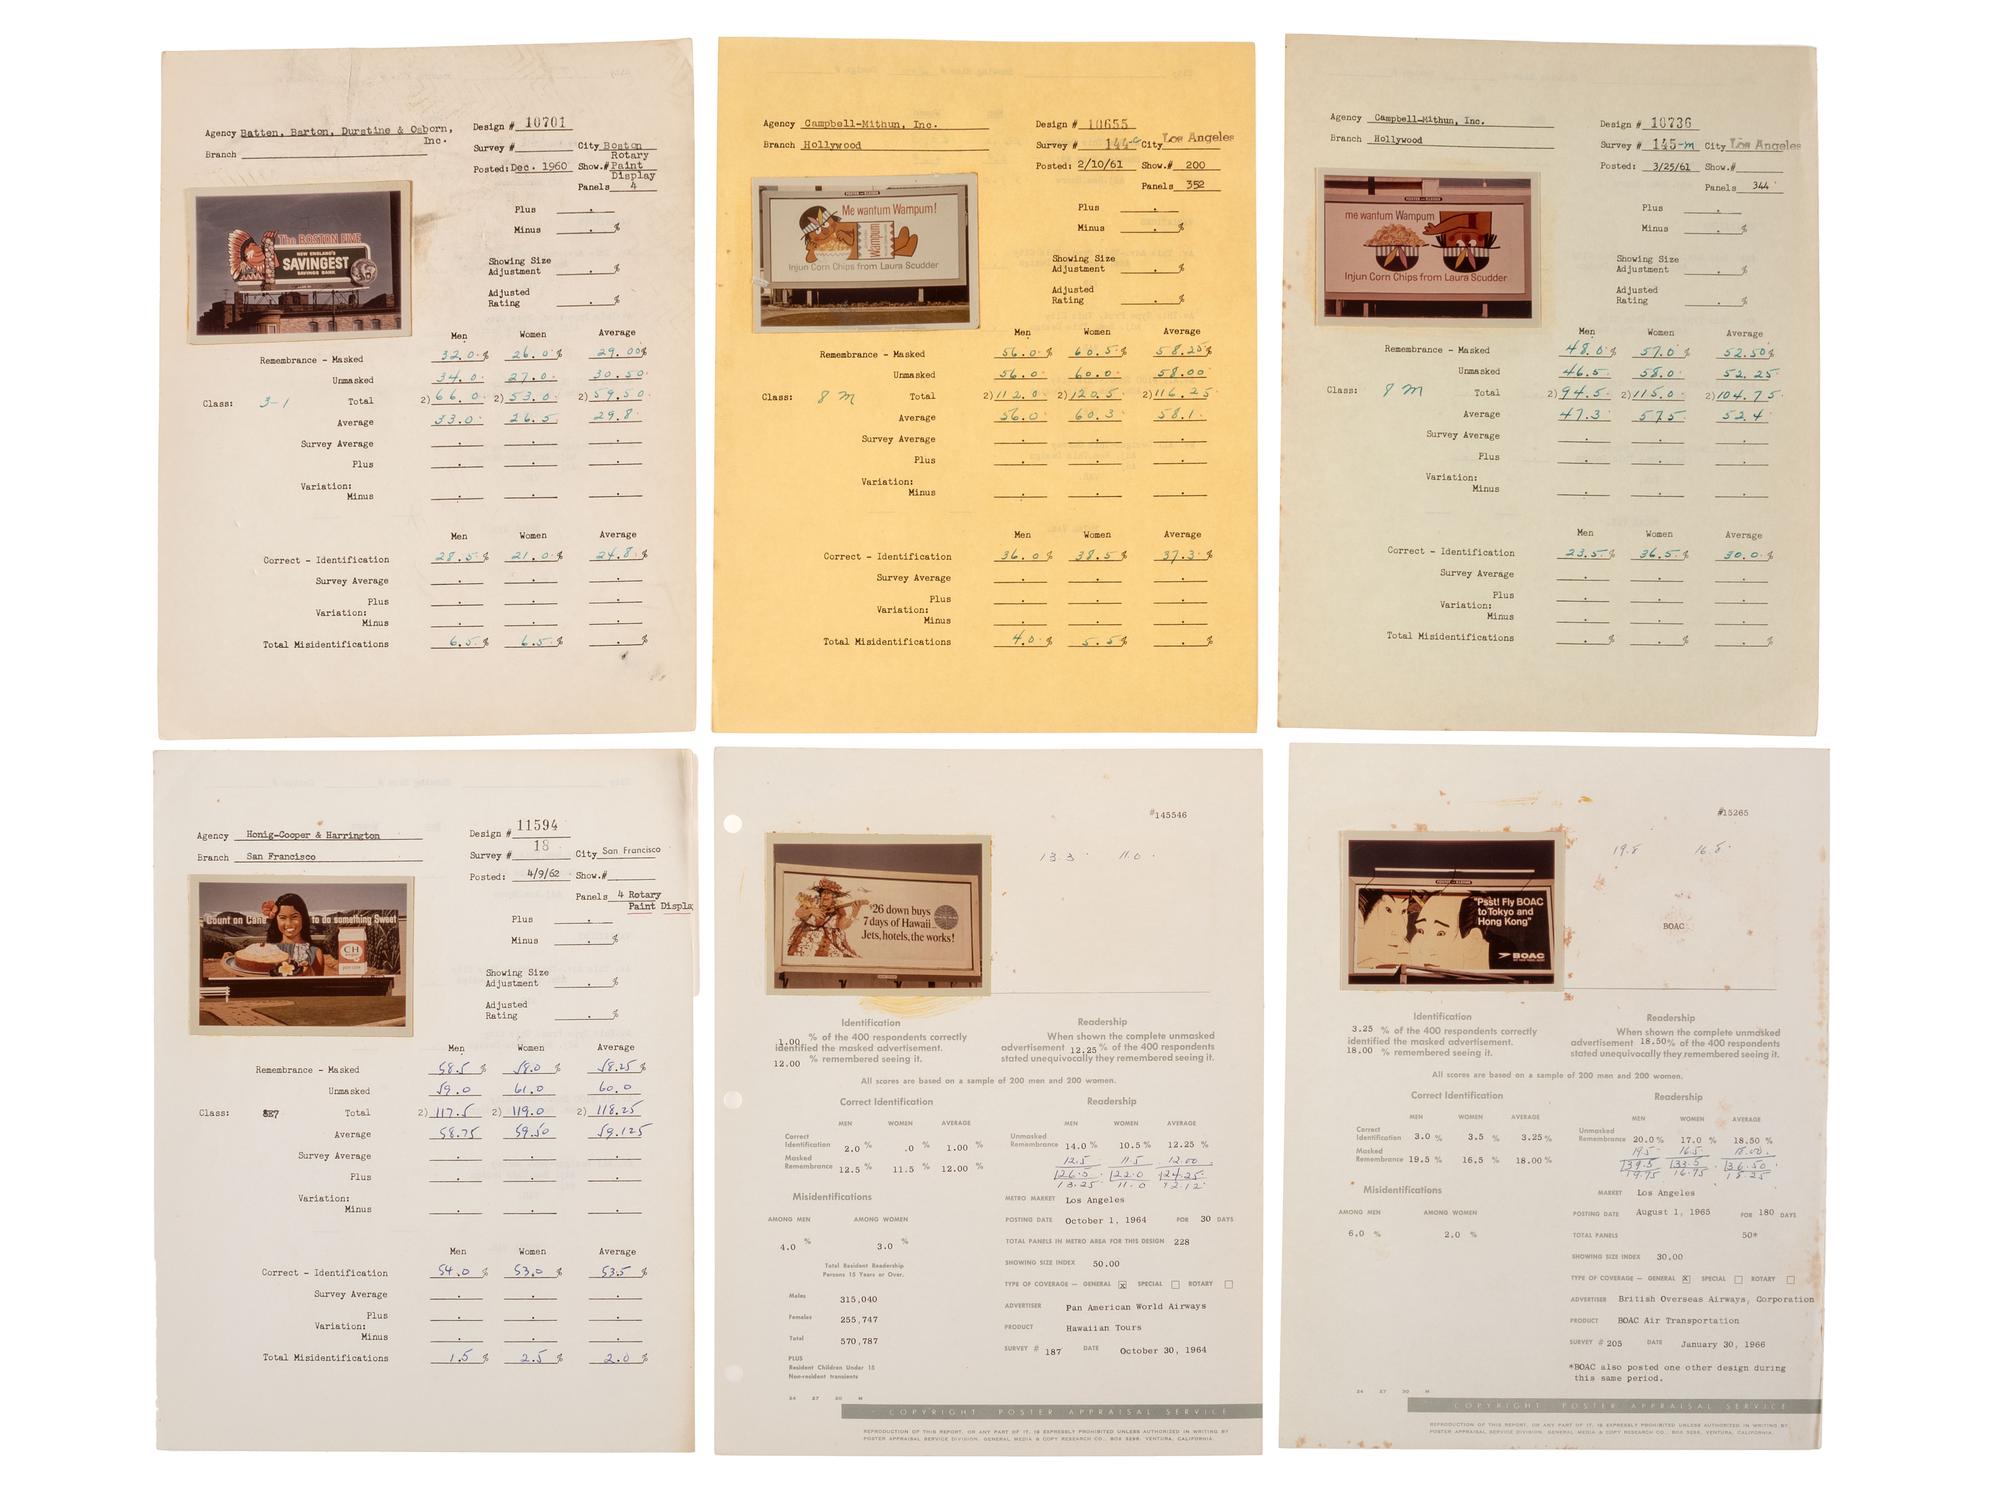 Agency Batten, Barton, Durstine & Osborn, Inc.
Design # 10701
Branch
Survey #
City Boston
Posted: Dec. 1960
Show.# Rotary Paint Display
Panels 4
The BOSTON FIVE
NEW ENGLAND'S
SAVINGEST
SAVINGS BANK
Plus .
Minus . %
Showing Size
Adjustment . %
Adjusted
Rating . %
Men Women Average
Remembrance - Masked 32.0 % 26.0 % 29.00%
Unmasked 34.0 27.0 30.50
Class: 3-1 Total 2) 66.0 2) 53.0 2) 59.50
Average 33.0 26.5 29.8
Survey Average . . .
Plus . . .
Variation:
Minus . . .
Men Women Average
Correct - Identification 28.5 % 21.0 % 24.8 %
Survey Average . . .
Plus . . .
Variation:
Minus . . .
Total Misidentifications 6.5 % 6.5 % . %
Agency Campbell-Mithun, Inc.
Design # 10655
Branch Hollywood
Survey # 144-C City Los Angeles
Posted: 2/10/61 Show.# 200
Panels 352
Me wantum Wampum!
Wampum
Injun Corn Chips from Laura Scudder
Plus .
Minus . %
Showing Size
Adjustment . %
Adjusted
Rating . %
Men Women Average
Remembrance - Masked 56.0 % 60.5 % 58.25%
Unmasked 56.0 60.0 58.00
Class: 8 M Total 2) 112.0 2) 120.5 2) 116.25
Average 56.0 60.3 58.1
Survey Average . . .
Plus . . .
Variation:
Minus . . .
Men Women Average
Correct - Identification 36.0 % 38.5 % 37.3 %
Survey Average . . .
Plus . . .
Variation:
Minus . . .
Total Misidentifications 4.0 % 5.5 % . %
Agency Campbell-Mithun, Inc.
Design # 10736
Branch Hollywood
Survey # 145-M City Los Angeles
Posted: 3/25/61 Show.#
Panels 344
me wantum Wampum
Injun Corn Chips from Laura Scudder
Plus .
Minus . %
Showing Size
Adjustment . %
Adjusted
Rating . %
Men Women Average
Remembrance - Masked 48.0 % 57.0 % 52.50%
Unmasked 46.5 58.0 52.25
Class: 8 M Total 2) 94.5 2) 115.0 2) 104.75
Average 47.3 57.5 52.4
Survey Average . . .
Plus . . .
Variation:
Minus . . .
Men Women Average
Correct - Identification 23.5 % 36.5 % 30.0 %
Survey Average . . .
Plus . . .
Variation:
Minus . . .
Total Misidentifications . % . % . %
Agency Honig-Cooper & Harrington
Design # 11594
Branch San Francisco
Survey # 18 City San Francisco
Posted: 4/9/62 Show.#
Panels 4 Rotary
Paint Displa
Count on Cane to do something Sweet
CH
Plus .
Minus . %
Showing Size
Adjustment . %
Adjusted
Rating . %
Men Women Average
Remembrance - Masked 58.5 % 58.0 % 58.25 %
Unmasked 59.0 61.0 60.0
Class: 8E7 Total 2) 117.5 2) 119.0 2) 118.25
Average 58.75 59.50 59.125
Survey Average . . .
Plus . . .
Variation:
Minus . . .
Men Women Average
Correct - Identification 54.0 % 53.0 % 53.5 %
Survey Average . . .
Plus . . .
Variation:
Minus . . .
Total Misidentifications 1.5 % 2.5 % 2.0 %
#145546
13.3 11.0
$26 down buys
7 days of Hawaii...
Jets, hotels, the works!
Identification
1.00 % of the 400 respondents correctly
identified the masked advertisement.
12.00 % remembered seeing it.
Readership
When shown the complete unmasked
advertisement 12.25 % of the 400 respondents
stated unequivocally they remembered seeing it.
All scores are based on a sample of 200 men and 200 women.
Correct Identification
MEN WOMEN AVERAGE
Correct
Identification 2.0 % .0 % 1.00 %
Masked
Remembrance 12.5 % 11.5 % 12.00 %
Readership
MEN WOMEN AVERAGE
Unmasked
Remembrance 14.0 % 10.5 % 12.25 %
12.5 11.5 12.00
26.5 22.0 24.25
13.25 11.0 12.12
Misidentifications
AMONG MEN AMONG WOMEN
4.0 % 3.0 %
Total Resident Readership
Persons 15 Years or Over.
Males 315,040
Females 255,747
Total 570,787
PLUS
Resident Children Under 15
Non-resident transients
METRO MARKET Los Angeles
POSTING DATE October 1, 1964 FOR 30 DAYS
TOTAL PANELS IN METRO AREA FOR THIS DESIGN 228
SHOWING SIZE INDEX 50.00
TYPE OF COVERAGE — GENERAL X SPECIAL ROTARY
ADVERTISER Pan American World Airways
PRODUCT Hawaiian Tours
SURVEY # 187 DATE October 30, 1964
24 27 30 M
COPYRIGHT POSTER APPRAISAL SERVICE
REPRODUCTION OF THIS REPORT, OR ANY PART OF IT, IS EXPRESSLY PROHIBITED UNLESS AUTHORIZED IN WRITING BY
POSTER APPRAISAL SERVICE DIVISION, GENERAL MEDIA & COPY RESEARCH CO., BOX 3298, VENTURA, CALIFORNIA.
#15265
19.8 16.8
BOAC
"Psst! Fly BOAC
to Tokyo and
Hong Kong"
BOAC
Identification
3.25 % of the 400 respondents correctly
identified the masked advertisement.
18.00 % remembered seeing it.
Readership
When shown the complete unmasked
advertisement 18.50% of the 400 respondents
stated unequivocally they remembered seeing it.
All scores are based on a sample of 200 men and 200 women.
Correct Identification
MEN WOMEN AVERAGE
Correct
Identification 3.0 % 3.5 % 3.25 %
Masked
Remembrance 19.5 % 16.5 % 18.00 %
Readership
MEN WOMEN AVERAGE
Unmasked
Remembrance 20.0 % 17.0 % 18.50 %
19.5 16.5 18.00
39.5 33.5 36.50
19.75 16.75 18.25
Misidentifications
AMONG MEN AMONG WOMEN
6.0 % 2.0 %
MARKET Los Angeles
POSTING DATE August 1, 1965 FOR 180 DAYS
TOTAL PANELS 50*
SHOWING SIZE INDEX 30.00
TYPE OF COVERAGE — GENERAL X SPECIAL ROTARY
ADVERTISER British Overseas Airways, Corporation
PRODUCT BOAC Air Transportation
SURVEY # 205 DATE January 30, 1966
*BOAC also posted one other design during
this same period.
24 27 30 M
COPYRIGHT POSTER APPRAISAL SERVICE
REPRODUCTION OF THIS REPORT, OR ANY PART OF IT, IS EXPRESSLY PROHIBITED UNLESS AUTHORIZED IN WRITING BY
POSTER APPRAISAL SERVICE DIVISION, GENERAL MEDIA & COPY RESEARCH CO., BOX 3298, VENTURA, CALIFORNIA.